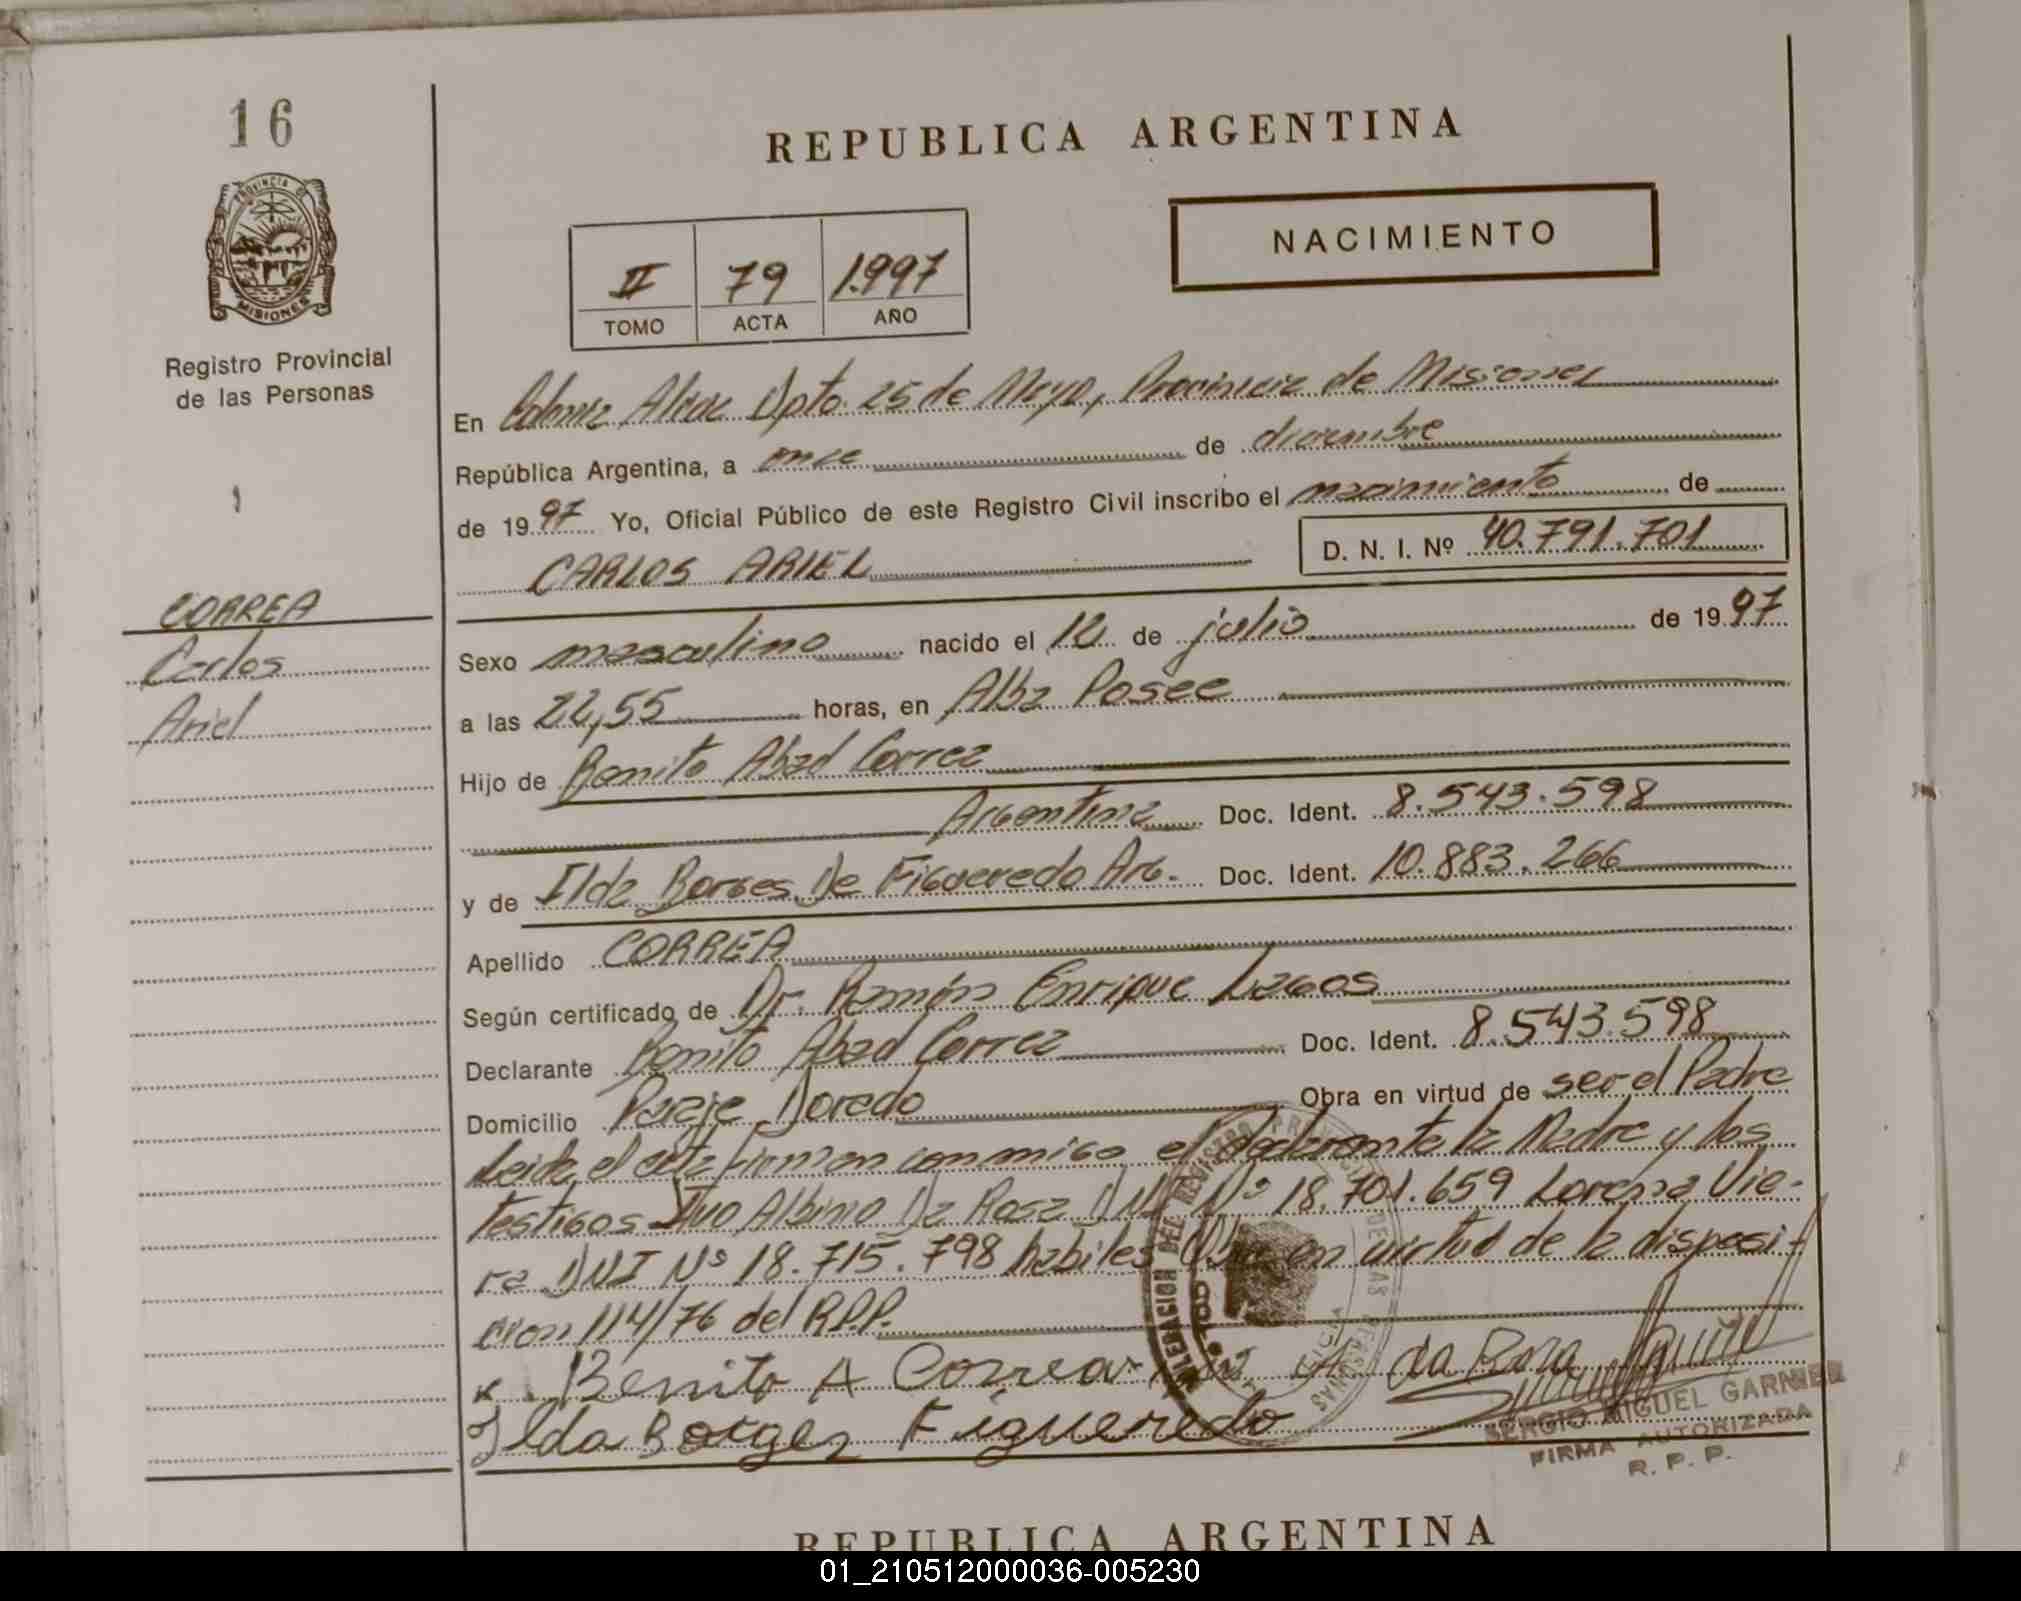 16
REPUBLICA ARGENTINA
PROVINCIA DE
MISIONES
Registro Provincial
de las Personas
NACIMIENTO
II 79 1.997
TOMO ACTA AÑO
En Colonia Alicia Dpto. 25 de Mayo, Provincia de Misiones
República Argentina, a once de diciembre
de 1997 Yo, Oficial Público de este Registro Civil inscribo el nacimiento de
CARLOS ARIEL D. N. I. Nº 40.791.701
CORREA
Carlos
Ariel
Sexo masculino nacido el 12 de julio de 1997
a las 22,55 horas, en Alba Posee
Hijo de Benito Abad Correa
Argentina Doc. Ident. 8.543.598
y de Ilda Borges De Figueredo Arg. Doc. Ident. 10.883.266
Apellido CORREA
Según certificado de Dr. Ramón Enrique Lagos
Declarante Benito Abad Correa Doc. Ident. 8.543.598
Domicilio Paraje Doredo Obra en virtud de ser el Padre
Leida el acta firman conmigo el declarante la Madre y los
Testigos Ivo Albino Da Rosa DNI Nº 18.701.659 Lorena Vie-
ra DNI Nº 18.715.798 habiles Obra en virtud de la disposi-
cion 114/76 del R.P.P.
Benito A Correa da Rosa
Ilda Borges Figueredo
SERGIO MIGUEL GARNIER
FIRMA AUTORIZADA
R. P. P.
REPUBLICA ARGENTINA
01_210512000036-005230